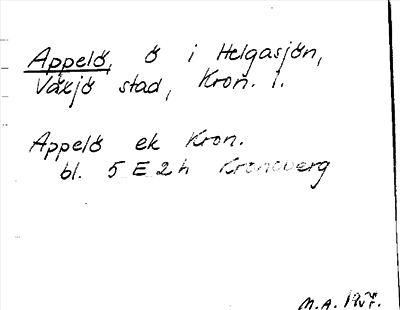 Appelö, ö i Helgasjön,
Växjö stad, Kron. l.
Appelö ek Kron.
bl. 5 E 2 h Kronoberg
M.A.